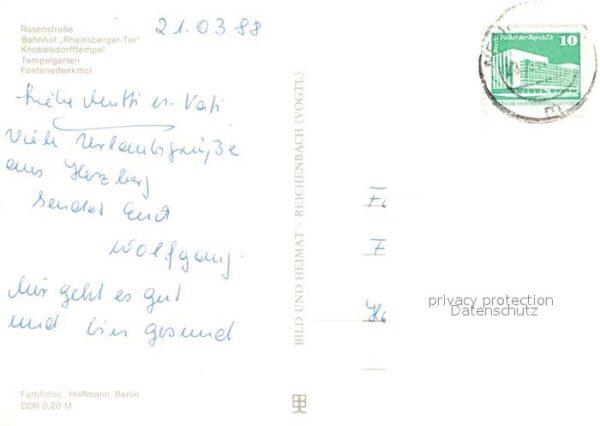 Rosenstraße
Bahnhof „Rheinsberger Tor"
Knobelsdorfftempel
Tempelgarten
Fontanedenkmal
21.03.88
Liebe Mutti u. Vati
Viele Urlaubsgrüße
aus Herzberg
sendet Euch
Wolfgang.
Mir geht es gut
und bin gesund
Farbfotos: Hoffmann, Berlin
DDR 0,20 M
BILD UND HEIMAT · REICHENBACH (VOGTL.)
Berlin, Palast der Republik
10
privacy protection
Datenschutz